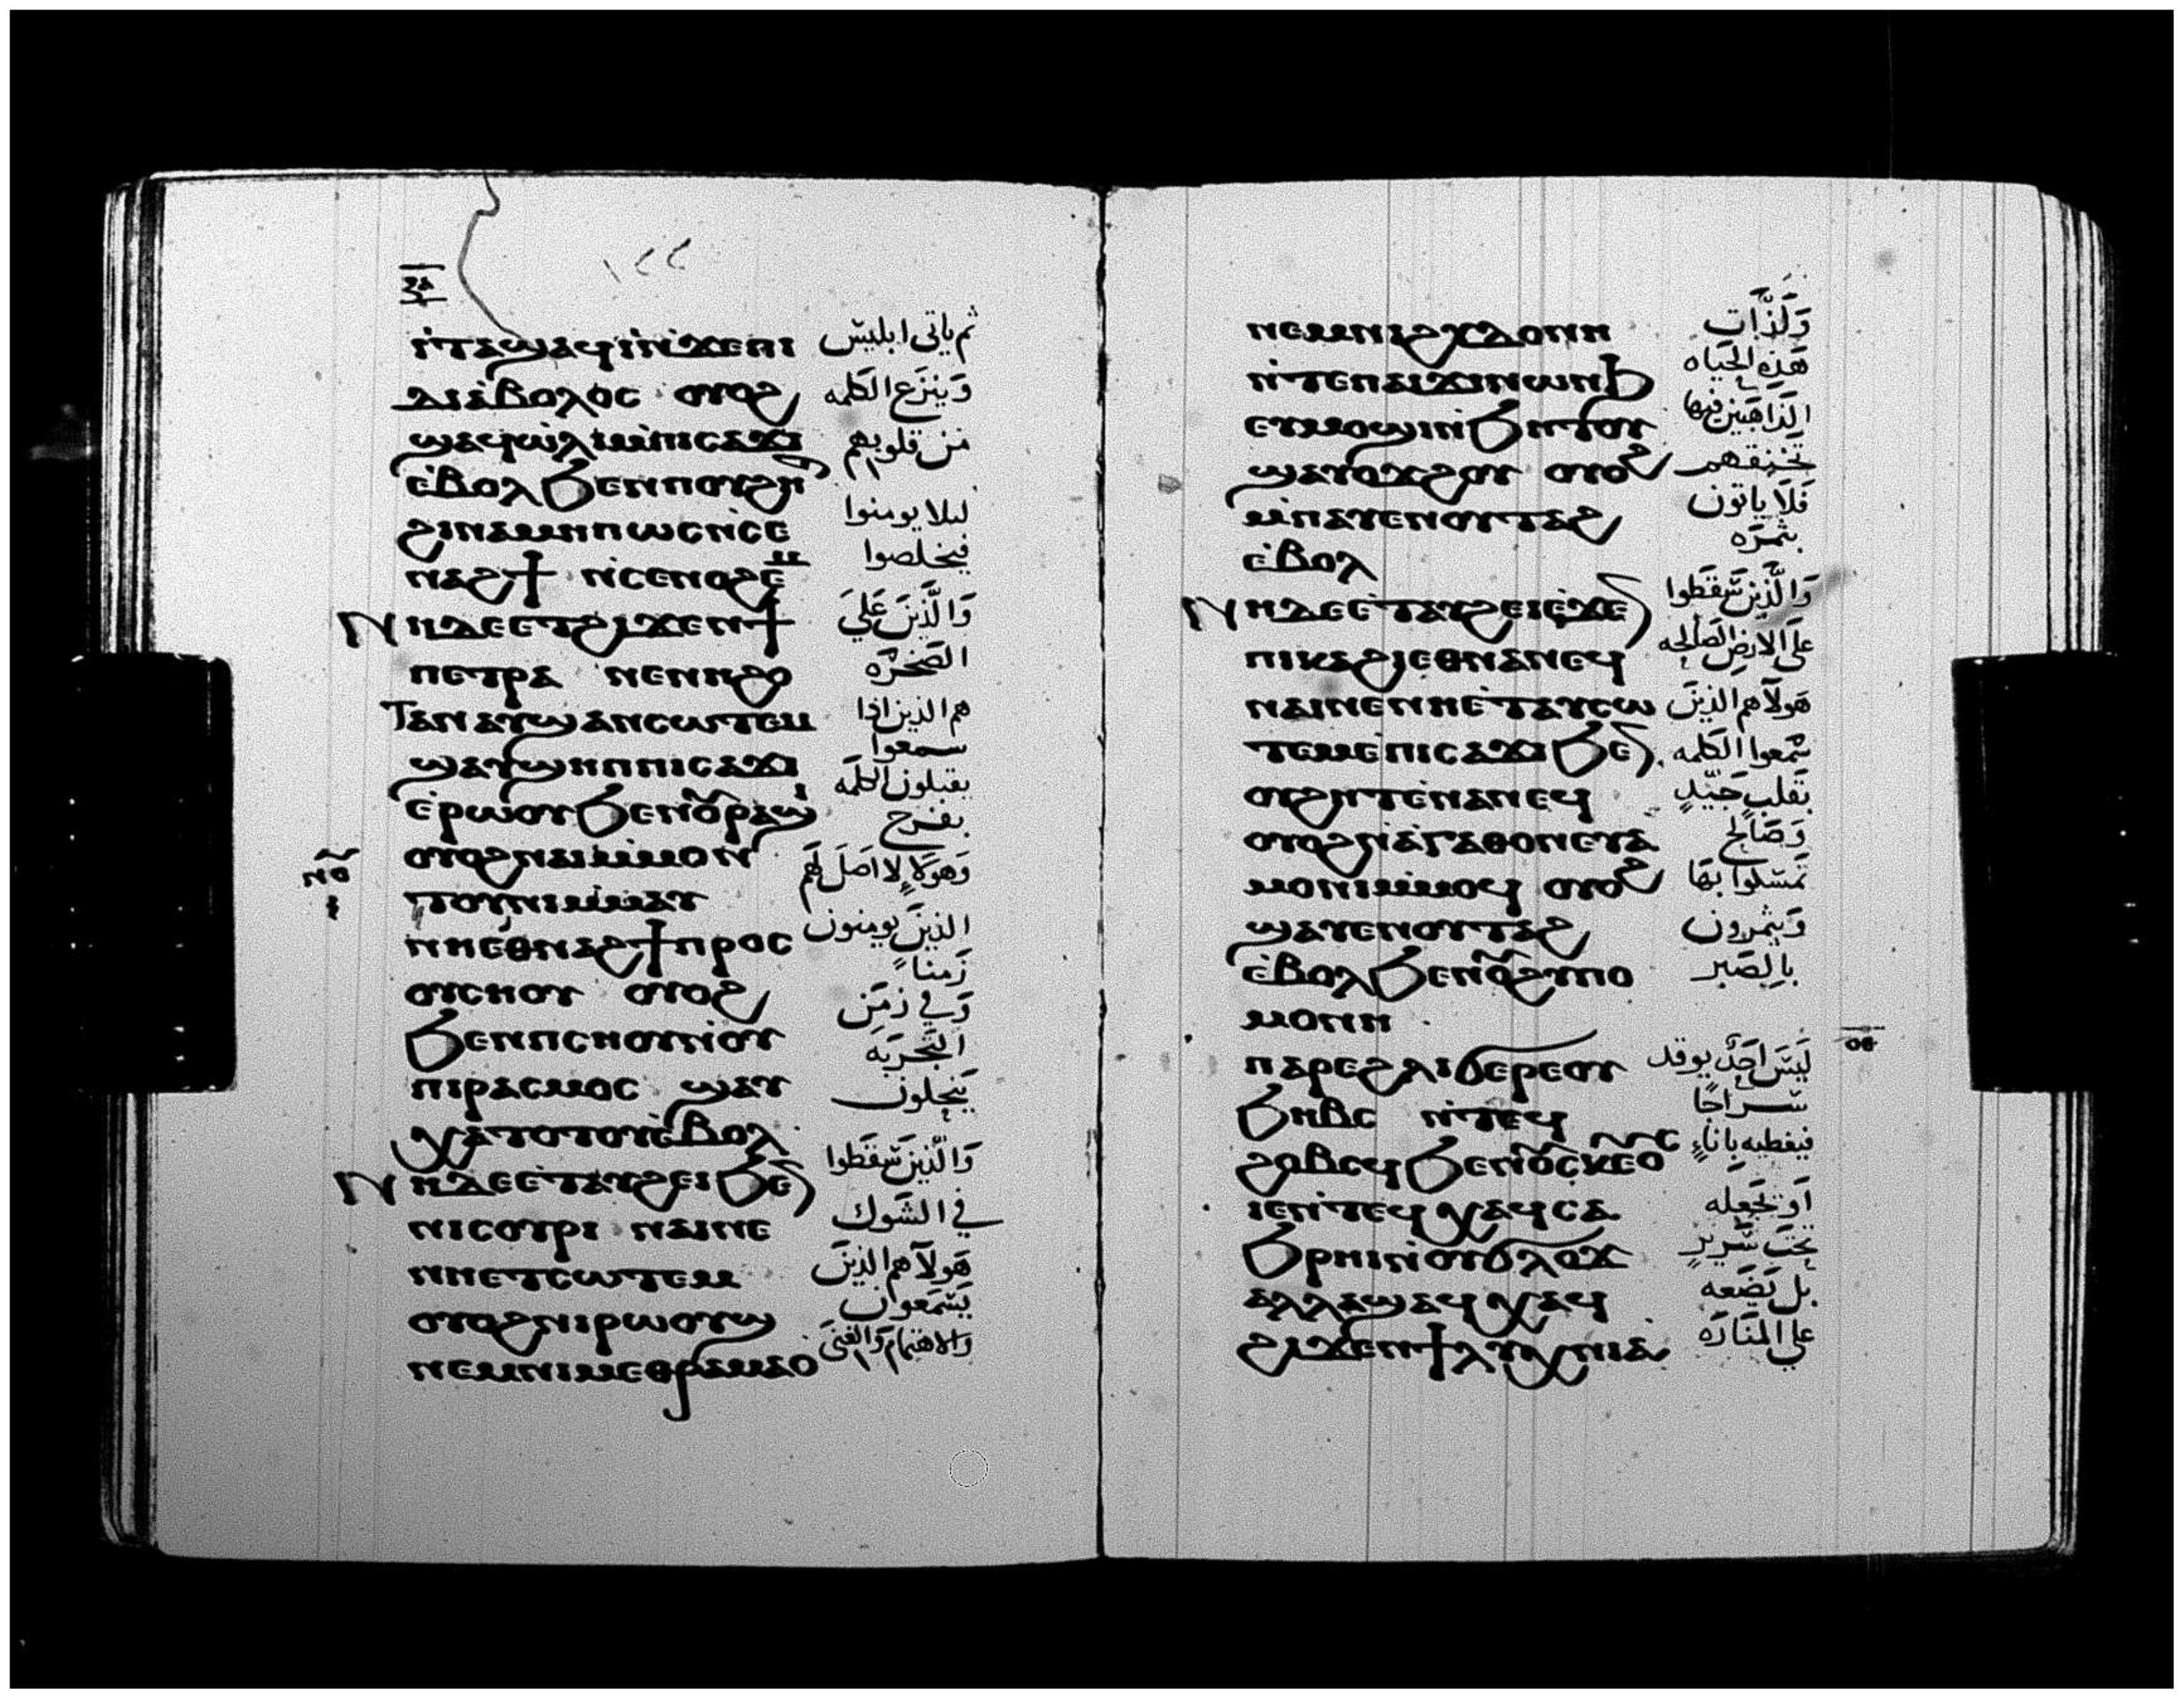 ١٢٢
ⲓⲧⲁϣⲁϥⲓ̀ⲛ̀ϫⲉⲡⲓ
ⲇⲓⲁ̀ⲃⲟⲗⲟⲥ ⲟⲩⲟϩ
ϣⲁϥⲱ̀ⲗⲓⲙ̀ⲡⲓⲥⲁϫⲓ
ⲉ̀ⲃⲟⲗϧⲉⲛⲡⲟⲩϩⲏⲧ
ϩⲓⲛⲁⲙⲏⲡⲱⲥⲛ̀ⲥⲉ
ⲛⲁϩϯ ⲛ̀ⲥⲉⲛⲟϩⲉⲙ
ⲛⲏⲇⲉⲉⲧϩⲓϫⲉⲛϯ
ⲡⲉⲧⲣⲁ ⲛⲉⲛⲏϩⲟ
ⲧⲁⲛ ⲁⲩϣⲁⲛⲥⲱⲧⲉⲙ
ϣⲁⲩϣⲏⲡⲡⲓⲥⲁϫⲓ
ⲉ̀ⲣⲱⲟⲩϧⲉⲛⲟ̅ⲣⲁϣⲓ
ⲟⲩⲟϩⲛⲁⲓⲙ̀ⲙⲟⲛ
ⲧⲟⲩⲛⲓⲙ̀ⲙⲁⲩ
ⲛⲏⲉ̀ⲑⲛⲁϩϯⲡⲣⲟⲥ
ⲟⲩⲥⲏⲟⲩ ⲟⲩⲟϩ
ϧⲉⲛⲡⲥⲏⲟⲩⲛ̀ⲟⲩ
ⲡⲓⲣⲁⲥⲙⲟⲥ ϣⲁⲩ
ⲭⲁⲧⲟⲧⲟⲩⲉ̀ⲃⲟⲗ
ⲛⲏⲇⲉⲉ̀ⲧⲁⲩϩⲉⲓϧⲉⲛ
ⲛⲓⲥⲟⲩⲣⲓ ⲛⲁⲓⲛⲉ
ⲛⲏⲉⲧⲥⲱⲧⲉⲙ
ⲟⲩⲟϩⲛⲓⲣⲱⲟⲩϣ
ⲛⲉⲙⲛⲓⲙⲉⲑⲣⲁⲙⲁⲟ
ثم ياتى ابليس
وَينزَع الكَلمه
من قلوبهم
ليلا يومنوا
فيخلصوا
وَالَّذينَ عَليَ
الصَخرَه
هم الذين اذا
سمعوا
يقبلون الكلَمه
بفرح
وَهَولَاءِ لا اصَلَ لهم
الذينَ يومنون
زَمناً
وَفي زمَن
التجربَه
يَنجلون
وَالّذينَ سَقَطوا
في الشَوك
هَولآهم الذينَ
يَسمَعون
وَالاهتمام وَالغنَى
ⲛⲉⲙⲛⲓϩⲩⲇⲟⲛⲏ
ⲛ̀ⲧⲉⲡⲁⲓϫⲓⲛⲱⲛϧ
ⲉⲩⲙⲟϣⲓⲛ̀ϧⲏⲧⲟⲩ
ϣⲁⲩⲟϫϩⲟⲩ ⲟⲩⲟϩ
ⲙ̀ⲡⲁⲩⲉⲛⲟⲩⲧⲁϩ
ⲉ̀ⲃⲟⲗ
ⲛⲏⲇⲉⲉ̀ⲧⲁⲩϩⲉⲓⲉ̀ϫⲉⲛ
ⲡⲓⲕⲁϩⲓⲉⲑⲛⲁⲛⲉϥ
ⲛⲁⲓⲛⲉⲛⲏⲉ̀ⲧⲁⲩⲥⲱ
ⲧⲉⲙⲉ̀ⲡⲓⲥⲁϫⲓϧⲉⲛ
ⲟⲩϩⲏⲧⲉ̀ⲛⲁⲛⲉϥ
ⲟⲩⲟϩⲛ̀ⲁ̀ⲅⲁⲑⲟⲛⲉⲩⲁ
ⲙⲟⲛⲓⲙ̀ⲙⲟϥ ⲟⲩⲟϩ
ϣⲁⲩⲉⲛⲟⲩⲧⲁϩ
ⲉ̀ⲃⲟⲗϧⲉⲛⲟ̅ϩⲩⲡⲟ
ⲙⲟⲛⲏ
ⲡⲁⲣⲉϩⲗⲓϭⲉⲣⲉⲟⲩ
ϧⲏⲃⲥ ⲛ̀ⲧⲉϥ
ϩⲟⲃⲥϥϧⲉⲛⲟ̅ⲥⲕⲉⲟⲥ
ⲓⲉⲛ̀ⲧⲉϥⲭⲁϥⲥⲁ
ϧⲣⲏⲓⲛ̀ⲟⲩϭⲗⲟϫ
ⲁⲗⲗⲁϣⲁϥⲭⲁϥ
ϩⲓϫⲉⲛϯⲗⲩⲭⲛⲓⲁ
وَلَذَّات
هَذِهِ الحَيَاه
الذَاهبَين فيها
تخنقهم
فَلَا ياتون
بثمرَه
وَالَّذينَ سَقَطوا
عَلى الارض الصَالحه
هَولآهم الذينَ
سَمعوا الكلمه
بقَلب جَيّدٍ
وَصَالح
تمسّكوا بهَا
وَيثمرون
بالصَبر
لَيسَ احَدٌ يوقد
سراجًا
فيغطيه بانآءٍ
اَو يَجعَله
تحت سَريرٍ
بل يَضَعه
علي المنَارَه